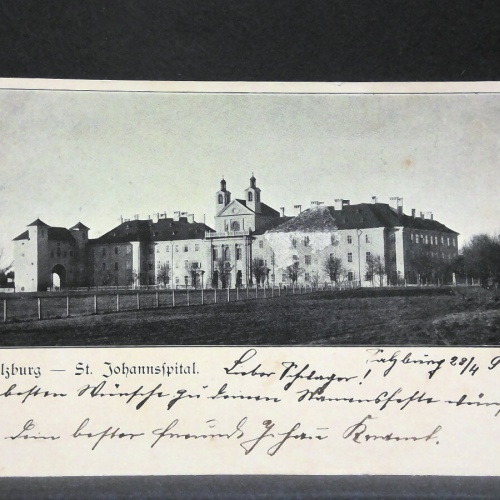 lzburg — St. Johannsspital. Lieber Schlager! Salzburg 28/4 9
besten Wünsche zu deinem Namensfeste wün
Dein bester Freund Johann